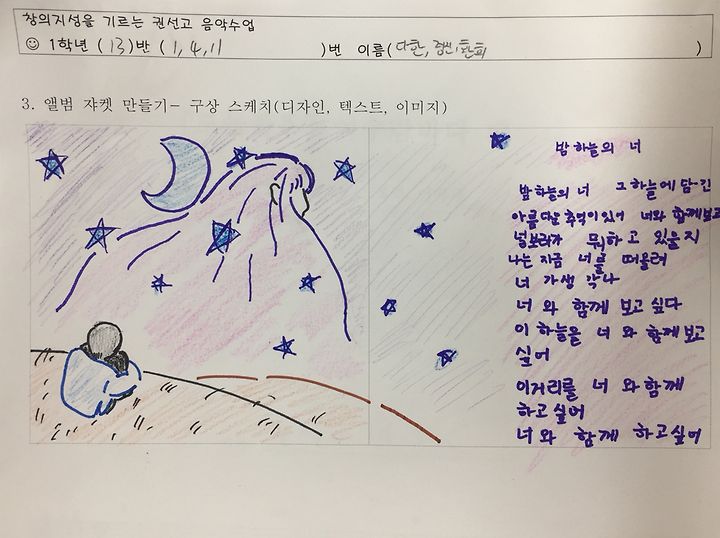 창의지성을 기르는 권선고 음악수업
☺ 1학년 ( 13 )반 ( 1, 4, 11 )번 이름( )
3. 앨범 쟈켓 만들기- 구상 스케치(디자인, 텍스트, 이미지)
밤하늘의 너
밤하늘의 너 그 하늘에 담긴
아름다운 추억이 있어 너와 함께 보고
널 보러가 뭐하고 있을지
나는 지금 너를 떠올려
너 가 생각나
너와 함께 보고 싶다
이 하늘을 너와 함께 보고
싶어
이거리를 너와 함께
하고 싶어
너와 함께 하고싶어